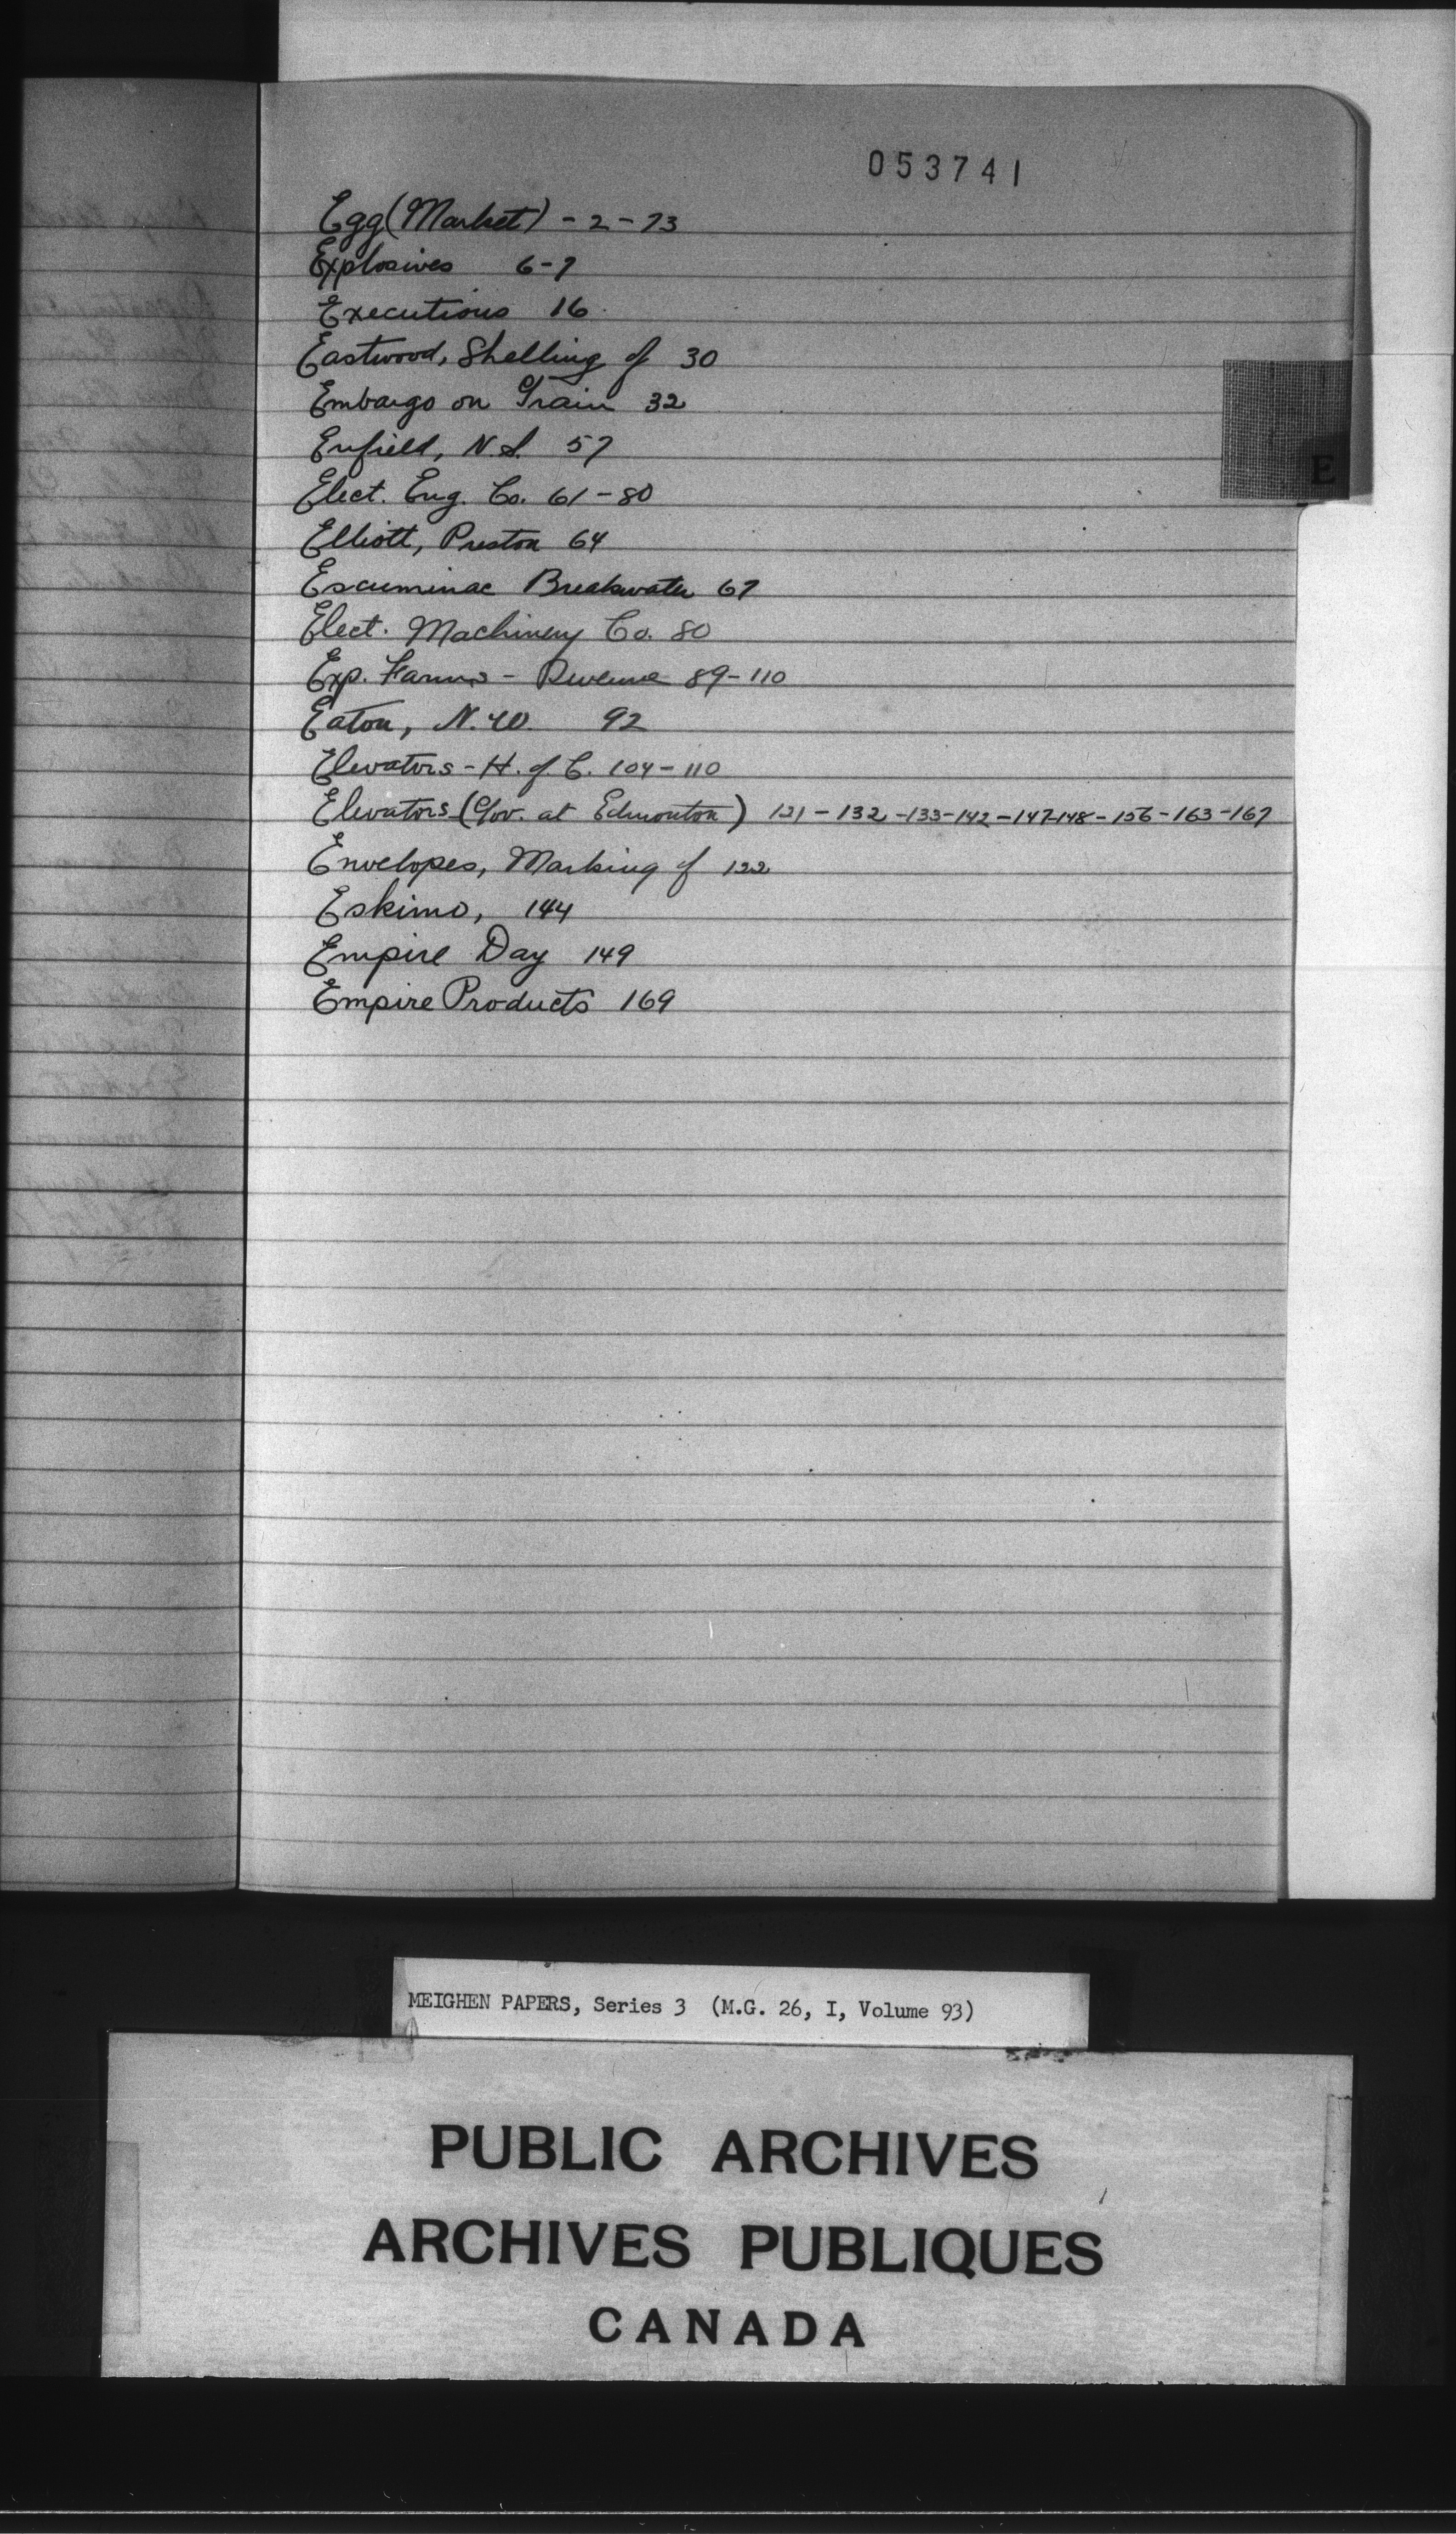 053741
Egg (Market) - 2 - 73
Explosives 6-7
Executions 16
Eastwood, Shelling of 30
Embargo on Grain 32
Enfield, N.S. 57
Elect. Eng. Co. 61 - 80
Elliott, Preston 64
Escuminac Breakwater 67
Elect. Machinery Co. 80
Exp. Farms - Revenue 89-110
Eaton, N.W. 92
Elevators - H. of C. 104 - 110
Elevators (Gov. at Edmonton) 121 - 132 - 133 - 142 - 147-148 - 156 - 163 - 167
E
Envelopes, Marking of 122
Eskimo, 144
Empire Day 149
Empire Products 169
MEIGHEN PAPERS, Series 3 (M.G. 26, I, Volume 93)
PUBLIC ARCHIVES
ARCHIVES PUBLIQUES
CANADA